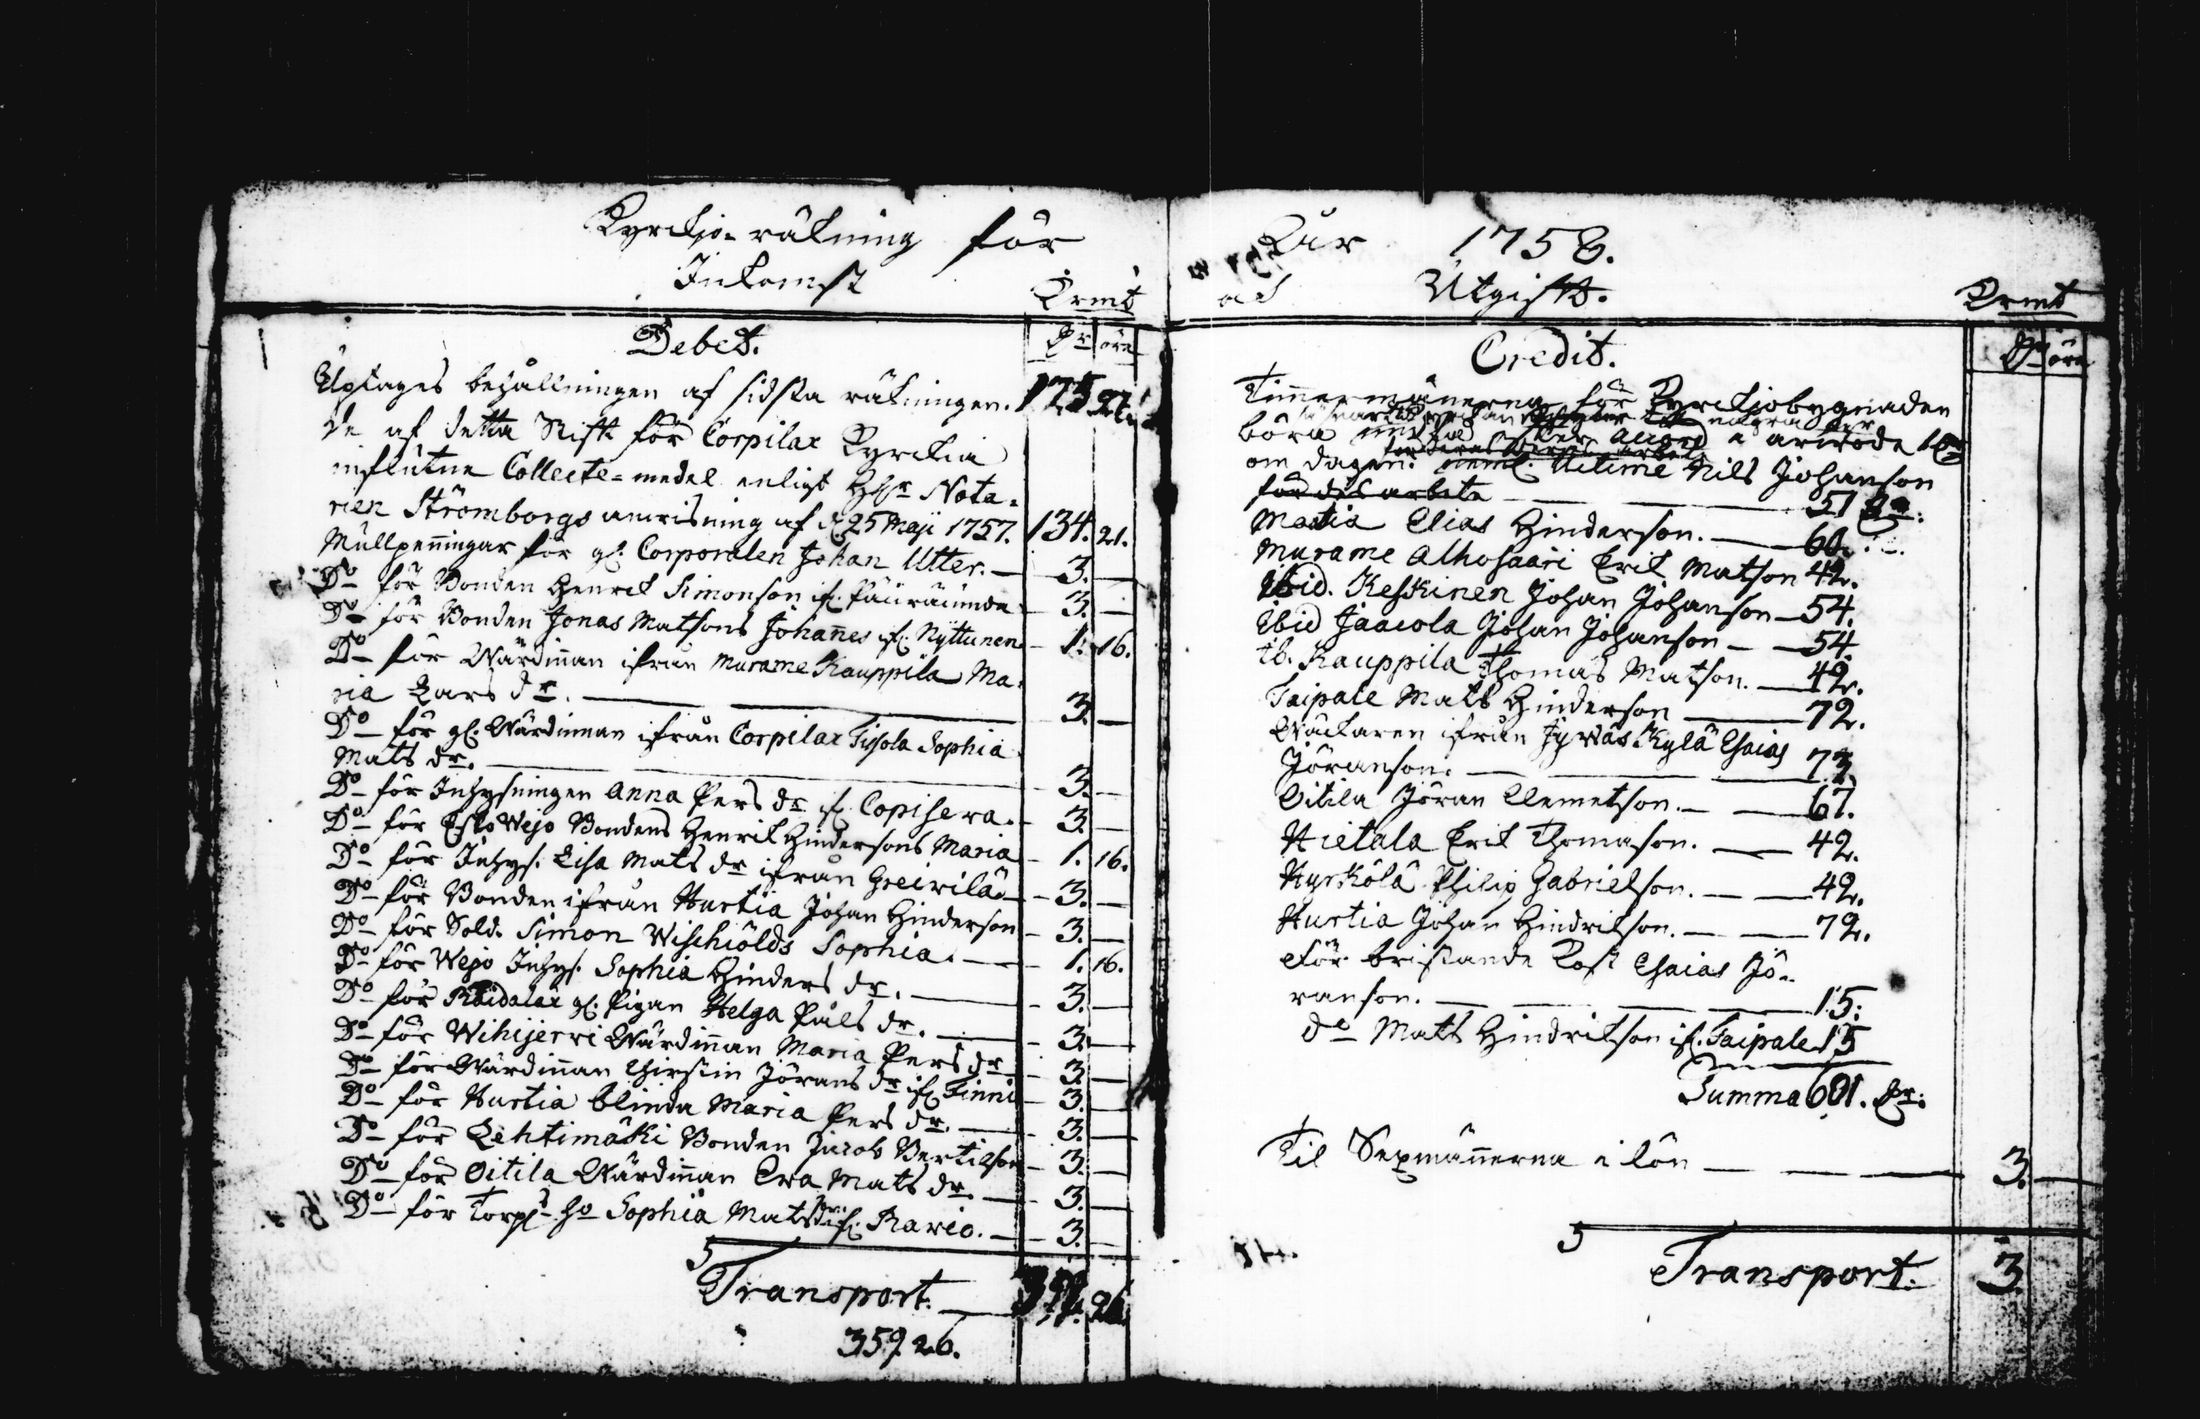 Kyrckjo-räkning för
Inkomst
Krmt
Debet.
Dr öre
Uptages behållningen af sidsta räkningen. 175 27.
De af detta Stift för Corpilax Kyrckia
influtne Collecte-medel enligt Notarien
Strömborgs anvisning af d. 25 Maji 1757. 134. 21.
Mullpenningar för gl. Corporalen Johan Utter. — 3. —
Do för Bonden Henrik Simonson if. — 3. —
Do för Bonden Jonas Matsons Johannes if. Nyttunen — 1. 16.
Do för Wärdinnan ifrån Murame Kauppila Ma-
ria Lars dr. — 3. —
Do för gl. Wärdinnan ifrån Corpilax Tijsola Sophia
Mats dr. — 3. —
Do för Inhysningen Anna Pers dr if. Copisera. — 3. —
Do för Wejo Bondens Henrik Hindersons Maria — 1. 16.
Do för Inhys. Lisa Mats dr ifrån — 3. —
Do för Bonden ifrån Hurtia Johan Hinderson — 3. —
Do för Sold. Simon Wischiölds Sophia. — 1. 16.
Do för Wejo Inhys. Sophia Hinders dr. — 3. —
Do för gl. Pigan Helga Påls dr. — 3. —
Do för Wihijerwi Wärdinnan Maria Pers dr — 3. —
Do för Wärdinnan Chirstin Jörans dr if. Tinni — 3. —
Do för Hurtia blinda Maria Pers dr. — 3. —
Do för Lehtimäki Bonden Jacob Bertilson — 3. —
Do för Oitila Wärdinnan Eva Mats dr. — 3. —
Do för Torp. Sophia Mats dr if. Ravio. — 3. —
Transport. — 26
359 26.
Åhr 1758.
Utgift.
Krmt
Credit.
Dr öre
Timmermänerna för Kyrckjobygnaden
böra accord i arwode
om dagen. neml. Uitime Nils Johanson
för des arbete — 51 Dr:
Matia Elias Hinderson. — 60.
Murame Alhosaari Erik Matson 42.
Ibid. Keskinen Johan Johanson — 54.
Ibid Jaacola Johan Johanson — 54.
ib. Kauppila Thomas Matson. — 42.
Taipale Mats Hinderson — 72.
Wäktaren ifrån Jywäs Kylä Esaias
Jöranson. — 73.
Oitila Jöran Clemetson. — 67.
Hietala Erik Thomason. — 42.
Hyrkölä Philip Gabrielson. — 42.
Hurtia Johan Hindrikson. — 72.
För bristande Kost Esaias Jö-
ranson. — 15:
do Mats Hindrikson if. Taipale 15
Summa 601. Dr:
Til Sexmännerna i lön — 3. —
Transport. 3